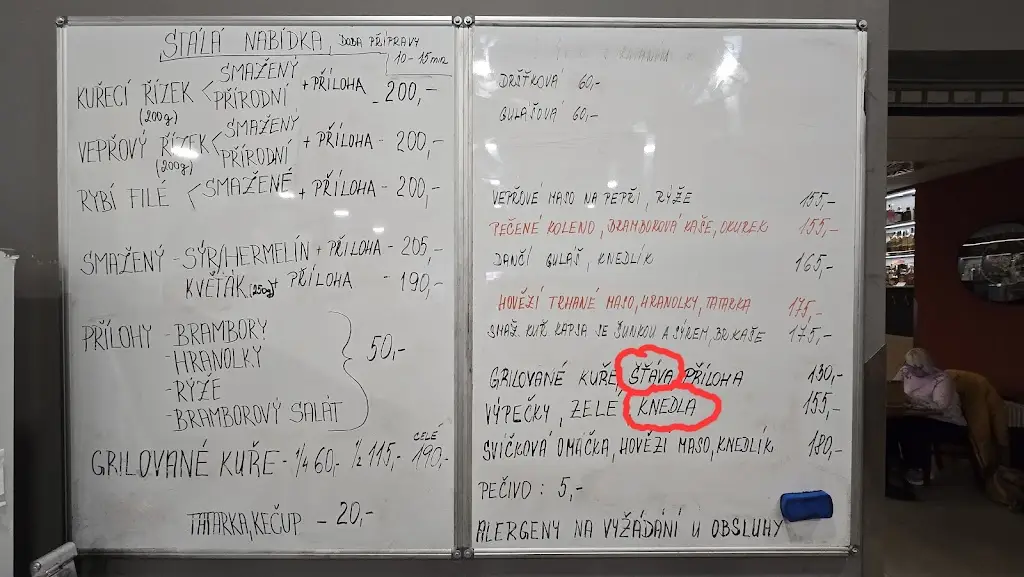 STÁLÁ NABÍDKA, DOBA PŘÍPRAVY
10-15 min
KUŘECÍ ŘÍZEK < SMAŽENÝ
PŘÍRODNÍ + PŘÍLOHA - 200,-
(200g)
VEPŘOVÝ ŘÍZEK < SMAŽENÝ
PŘÍRODNÍ + PŘÍLOHA - 200,-
(200g)
RYBÍ FILÉ < SMAŽENÉ + PŘÍLOHA - 200,-
SMAŽENÝ - SÝR/HERMELÍN + PŘÍLOHA - 205,-
KVĚTÁK (250g) + PŘÍLOHA - 190,-
PŘÍLOHY - BRAMBORY
- HRANOLKY
- RÝŽE
- BRAMBOROVÝ SALÁT
50,-
GRILOVANÉ KUŘE - 1/4 60,- 1/2 115,- CELÉ 190,-
TATARKA, KEČUP - 20,-
DRŠŤKOVÁ 60,-
GULÁŠOVÁ 60,-
VEPŘOVÉ MASO NA PEPŘI, RÝŽE 155,-
PEČENÉ KOLENO, BRAMBOROVÁ KAŠE, OKUREK 155,-
DANČÍ GULÁŠ, KNEDLÍK 165,-
HOVĚZÍ TRHANÉ MASO, HRANOLKY, TATARKA 175,-
SMAŽ. KUŘ. KAPSA SE ŠUNKOU A SÝREM, BR. KAŠE 175,-
GRILOVANÉ KUŘE, ŠŤÁVA PŘÍLOHA 130,-
VÝPEČKY, ZELÉ, KNEDLA 155,-
SVÍČKOVÁ OMÁČKA, HOVĚZÍ MASO, KNEDLÍK 180,-
PEČIVO : 5,-
ALERGENY NA VYŽÁDÁNÍ U OBSLUHY